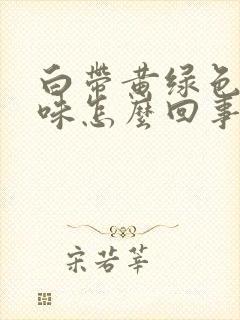 白带黄绿色
味怎麼回事
宋若莘